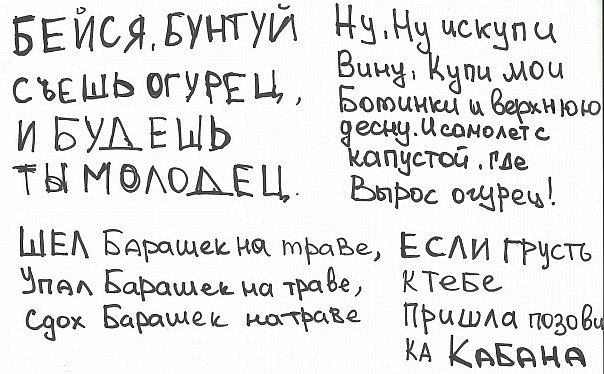 БЕЙСЯ, БУНТУЙ
СЪЕШЬ ОГУРЕЦ,
И БУДЕШЬ
ТЫ МОЛОДЕЦ.
Ну, Ну искупи
Вину, Купи мои
Ботинки и верхнюю
десну. И самолет с
капустой, где
Вырос огурец!
ШЕЛ Барашек на траве,
Упал Барашек на траве,
Сдох Барашек на траве
ЕСЛИ грусть
к тебе
Пришла позови
КА КАБАНА